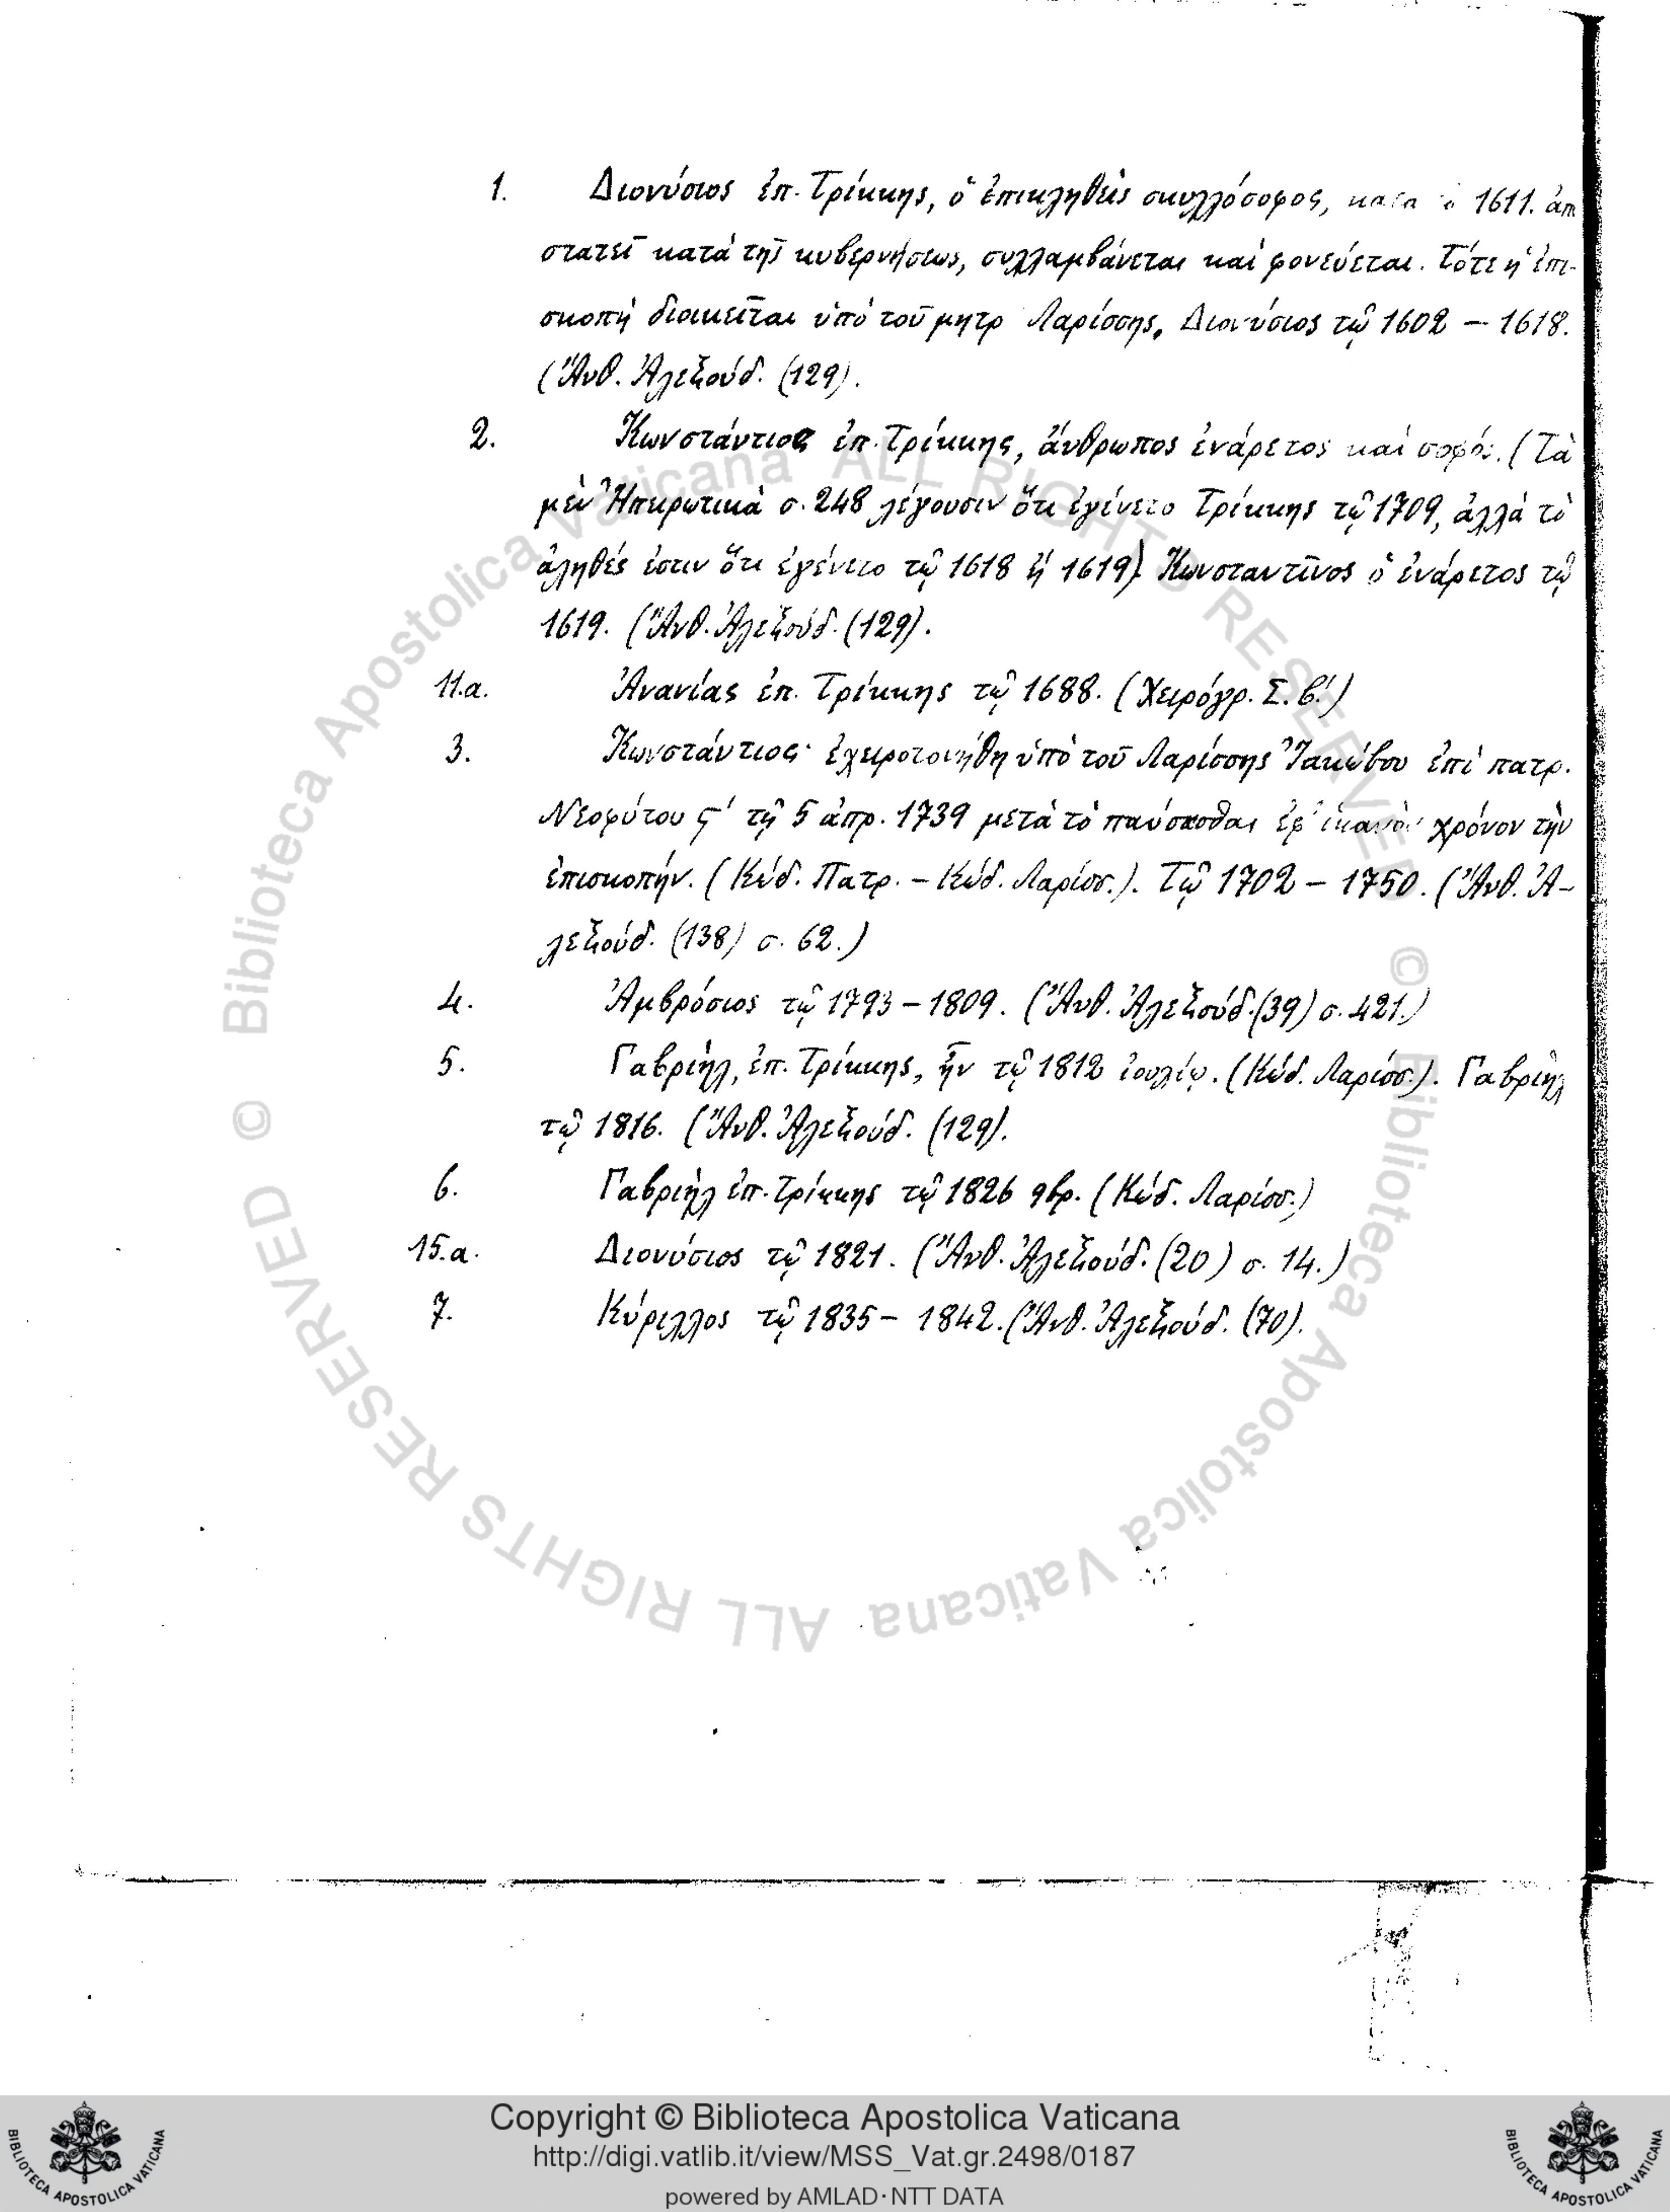 1. Διονύσιος ἐπ. Τρίκκης, ὁ ἐπικληθεὶς σκυλλόσοφος, κατὰ 1611. ἀπ
στατεῖ κατὰ τῆς κυβερνήσεως, συλλαμβάνεται καὶ φονεύεται. Τότε ἡ ἐπι-
σκοπὴ διοικεῖται ὑπὸ τοῦ μητρ Λαρίσσης. Διονύσιος τῷ 1602 – 1618.
(Ἄνθ. Ἀλεξούδ. (129).
2. Κωνστάντιος ἐπ. Τρίκκης, ἄνθρωπος ἐνάρετος καὶ σοφός. (Τὰ
μὲν Ἠπειρωτικὰ σ. 248 λέγουσιν ὅτι ἐγίνετο Τρίκκης τῷ 1709, ἀλλὰ τὸ
ἀληθές ἐστιν ὅτι ἐγένετο τῷ 1618 ἢ 1619). Κωνσταντῖνος ὁ ἐνάρετος τῷ
1619. (Ἄνθ. Ἀλεξούδ. (129).
11.α. Ἀνανίας ἐπ. Τρίκκης τῷ 1688. (Χειρόγρ. Σ. β.΄)
3. Κωνστάντιος· ἐχειροτονήθη ὑπὸ τοῦ Λαρίσσης Ἰακώβου ἐπὶ πατρ.
Νεοφύτου ϛ΄ τῇ 5 ἀπρ. 1739 μετὰ τὸ παύσασθαι ἐφ' ἱκανὸν χρόνον τὴν
ἐπισκοπήν. (Κώδ. Πατρ. – Κώδ. Λαρίσσ.). Τῷ 1702 – 1750. (Ἄνθ. Ἀ-
λεξούδ. (138) σ. 62.)
4. Ἀμβρόσιος τῷ 1793 – 1809. (Ἄνθ. Ἀλεξούδ. (39) σ. 421.)
5. Γαβριὴλ, ἐπ. Τρίκκης, ἦν τῷ 1812 ἰουλίῳ. (Κώδ. Λαρίσσ.). Γαβριὴλ
τῷ 1816. (Ἄνθ. Ἀλεξούδ. (129).
6. Γαβριὴλ ἐπ. Τρίκκης τῷ 1826 9βρ. (Κώδ. Λαρίσσ.)
15.α. Διονύσιος τῷ 1821. (Ἄνθ. Ἀλεξούδ. (20) σ. 14.)
7. Κύριλλος τῷ 1835 – 1842. (Ἄνθ. Ἀλεξούδ. (70).
© Biblioteca Apostolica Vaticana ALL RIGHTS RESERVED
© Biblioteca Apostolica Vaticana ALL RIGHTS RESERVED
Copyright © Biblioteca Apostolica Vaticana
http://digi.vatlib.it/view/MSS_Vat.gr.2498/0187
powered by AMLAD·NTT DATA
BIBLIOTECA APOSTOLICA VATICANA
BIBLIOTECA APOSTOLICA VATICANA